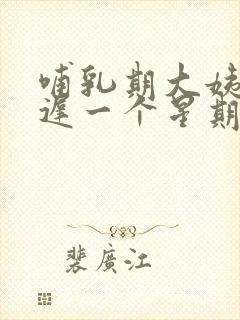 哺乳期大姨
遅一个星期
裴廣江